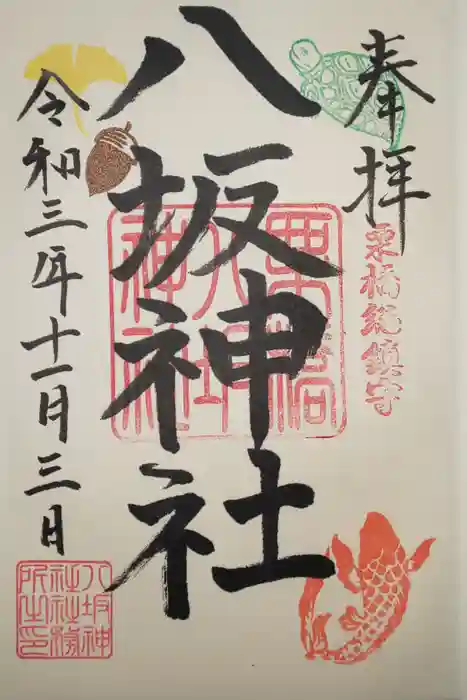 奉拝
栗橋総鎮守
八坂神社
栗橋
八坂
神社
令和三年十一月三日
八坂神
社社務
所之印